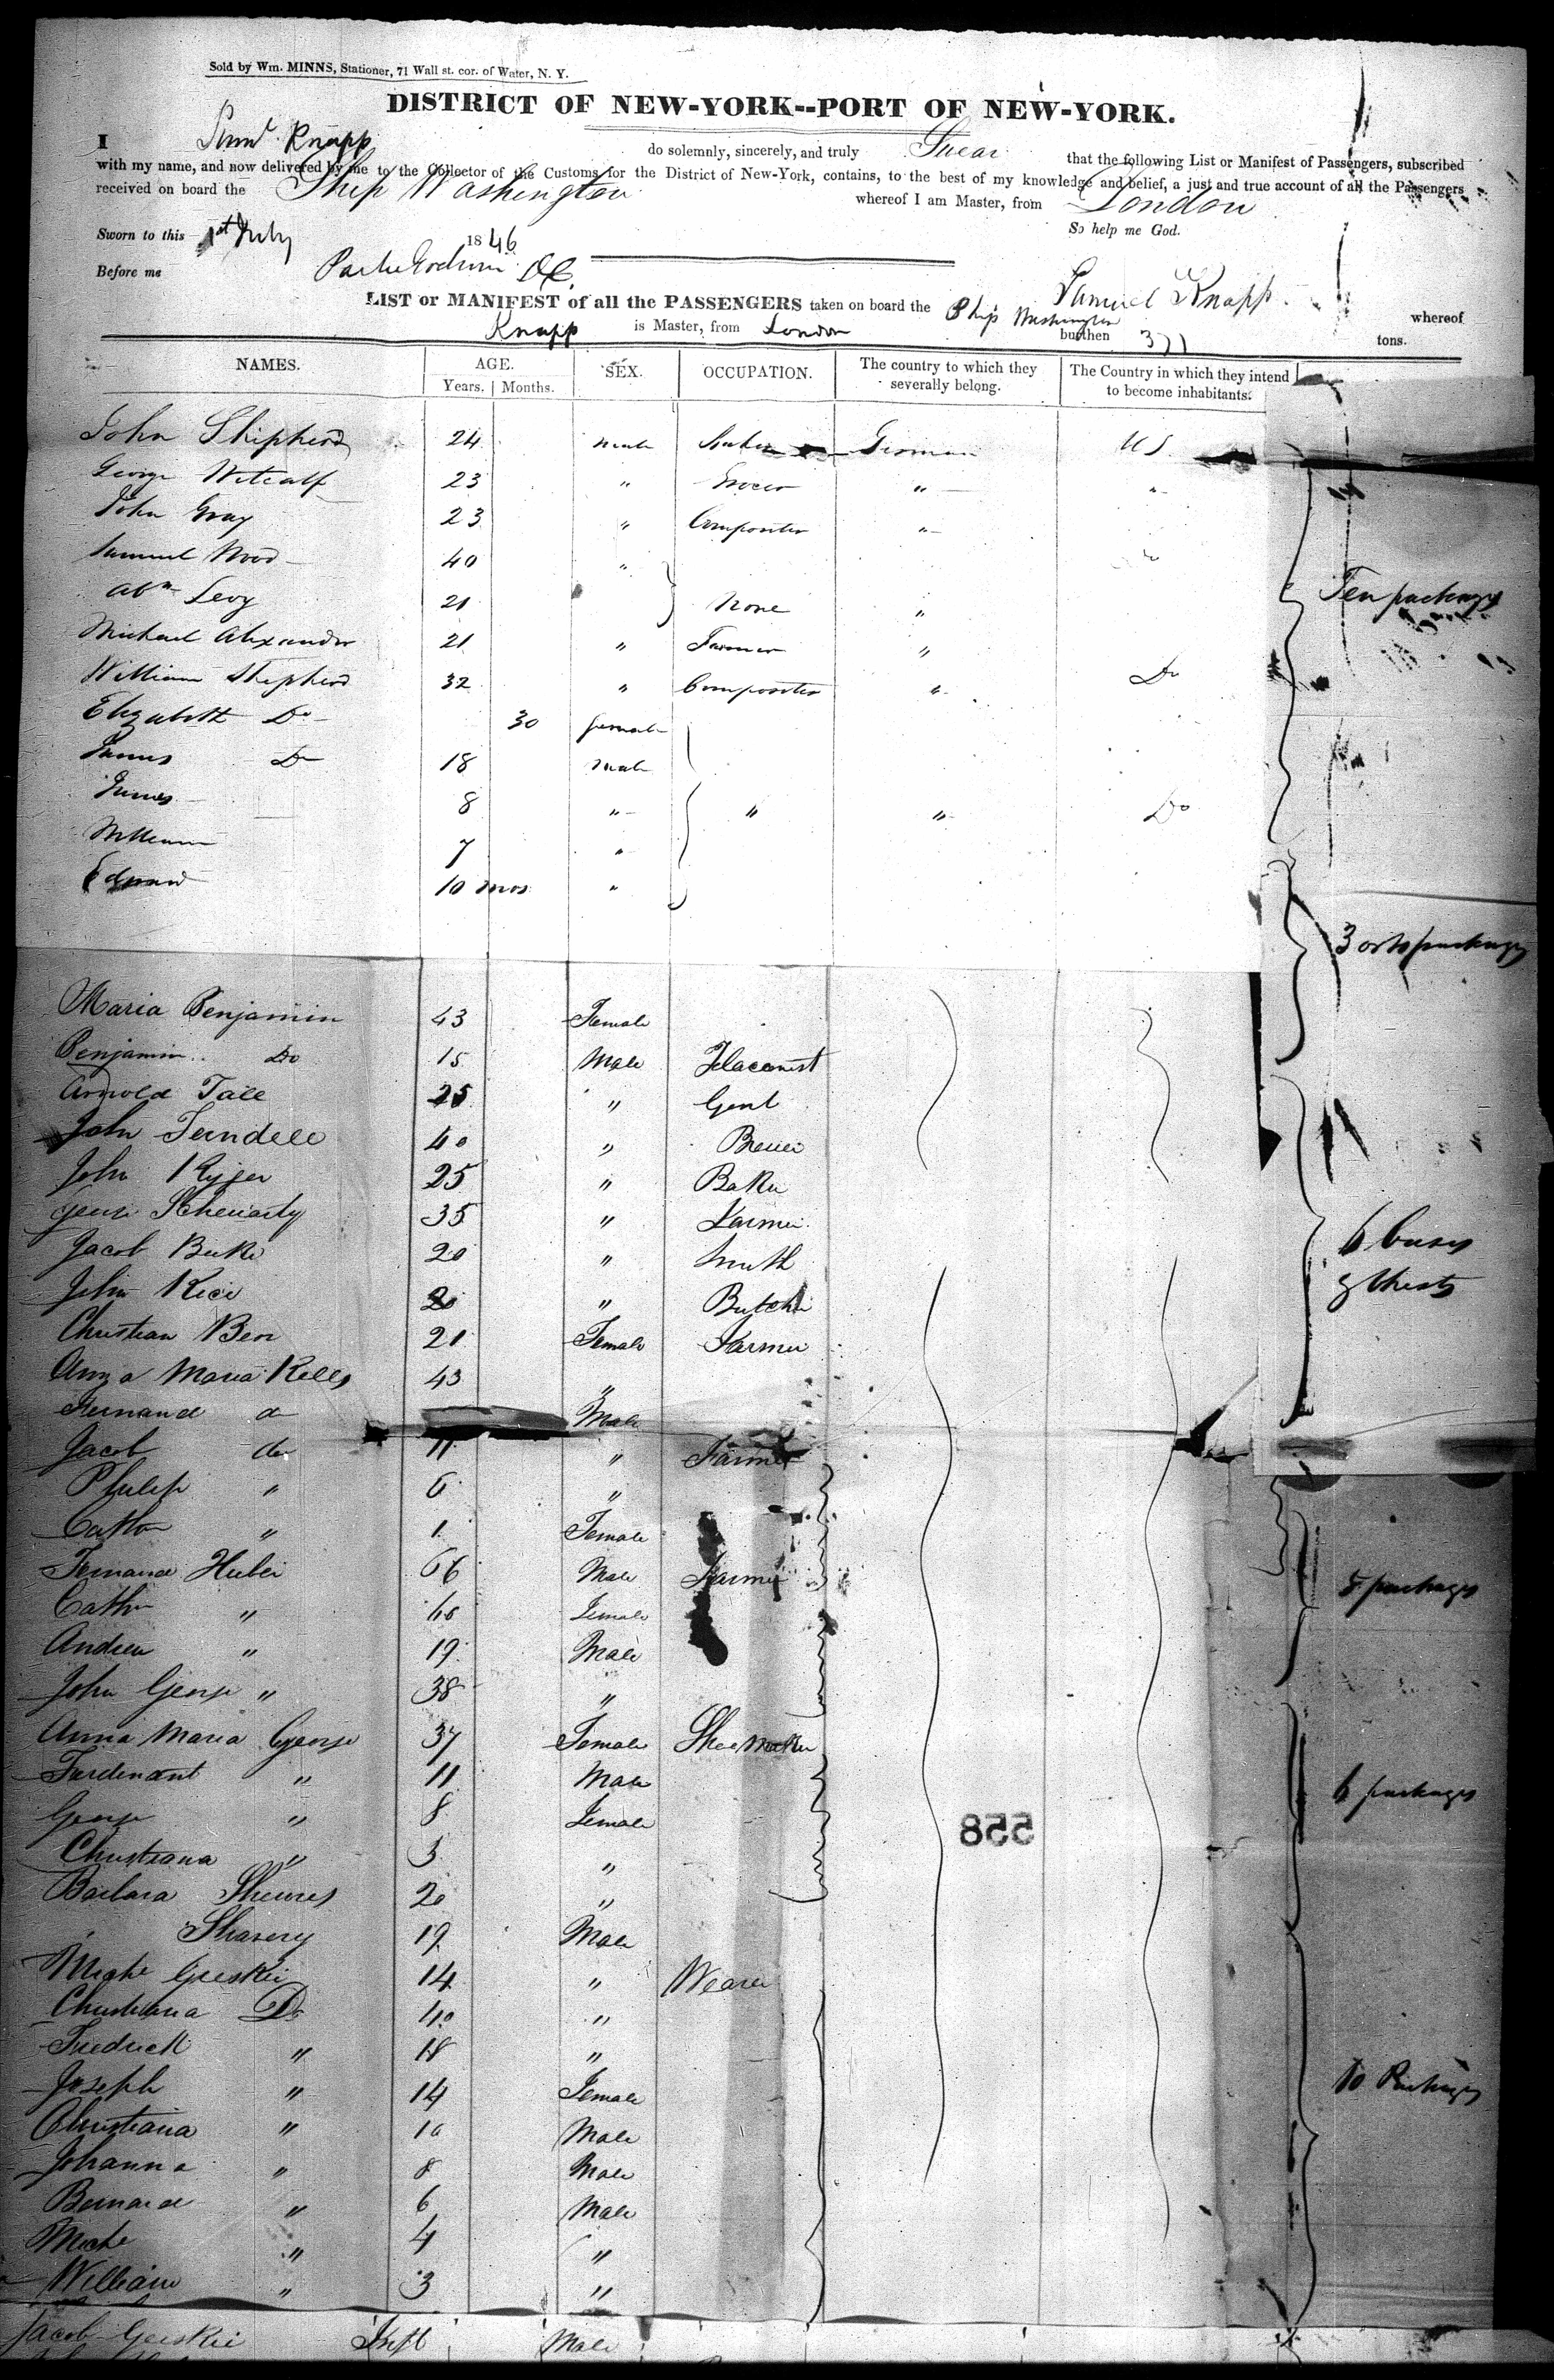 Sold by Wm. MINNS, Stationer, 71 Wall st. cor. of Water, N. Y.
DISTRICT OF NEW-YORK--PORT OF NEW-YORK.
I Saml Knapp do solemnly, sincerely, and truly Swear that the following List or Manifest of Passengers, subscribed
with my name, and now delivered by me to the Collector of the Customs for the District of New-York, contains, to the best of my knowledge and belief, a just and true account of all the Passengers
received on board the Ship Washington whereof I am Master, from London
Sworn to this 1st July 1846 So help me God.
Before me
Samuel Knapp
LIST or MANIFEST of all the PASSENGERS taken on board the Ship Washington whereof
Knapp is Master, from London burthen 371 tons.
NAMES. AGE. SEX. OCCUPATION. The country to which they severally belong. The Country in which they intend to become inhabitants.
Years. Months.
John Shipherd 24 male German US
George Metcalf 23 " Grocer " "
John Gray 23 " Compositor "
Samuel Wood 40 " Do
Abm Levy 21 None "
Ten packages
Michael Alexander 21 " Farmer "
William Shepherd 32 " Compositor " Do
Elizabeth Do 30 female
James Do 18 male
James 8 " " " Do
William 7 "
Edward 10 mos "
3 packages
Maria Benjamin 43 Female
Benjamin Do 15 Male
Arnold Tale 25 " Gent
John Terndell 40 "
John 25 " Baker
George 35 " Farmer
Jacob 20 " Smith
6 Boxes
John Rice 20 " Butcher
& Chests
Christian Ben 21 Female Farmer
Anna Maria Kells 43 "
Fernand do Male
Jacob do 11 " Farmer
Philip " 6 "
Cathn " 1 Female
Fernand Huber 66 Male Farmer
5 packages
Cathn " 60 Female
Andrew " 19 Male
John George " 38 "
Anna Maria George 37 Female Shoemaker
Ferdenant " 11 Male
6 packages
George " 8 Female
Christiana " 3 "
Barbara 20 "
19 Male
14 " Weaver
Christiana Do 40 "
Fredrick " 18 "
Joseph " 14 Female
10 Packages
Christiana " 10 Male
Johanna " 8 Male
Bernard " 6 Male
" 4 "
William " 3 "
Jacob Inft Male
558